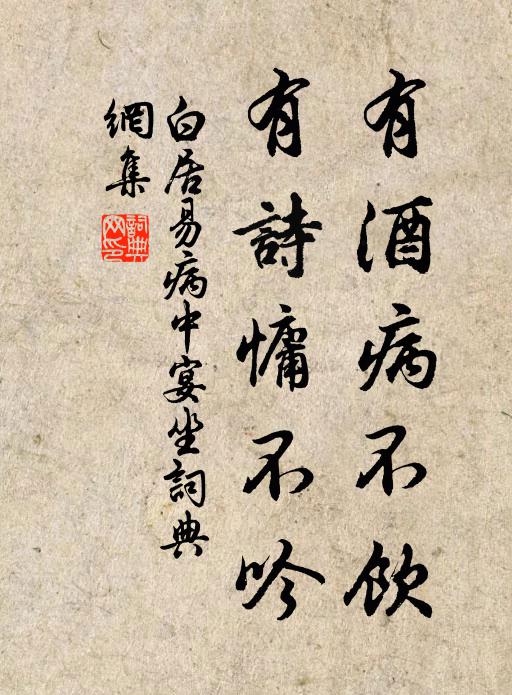 有酒病不飲
有詩慵不吟
白居易病中宴坐詞典
網集
詞典
网印